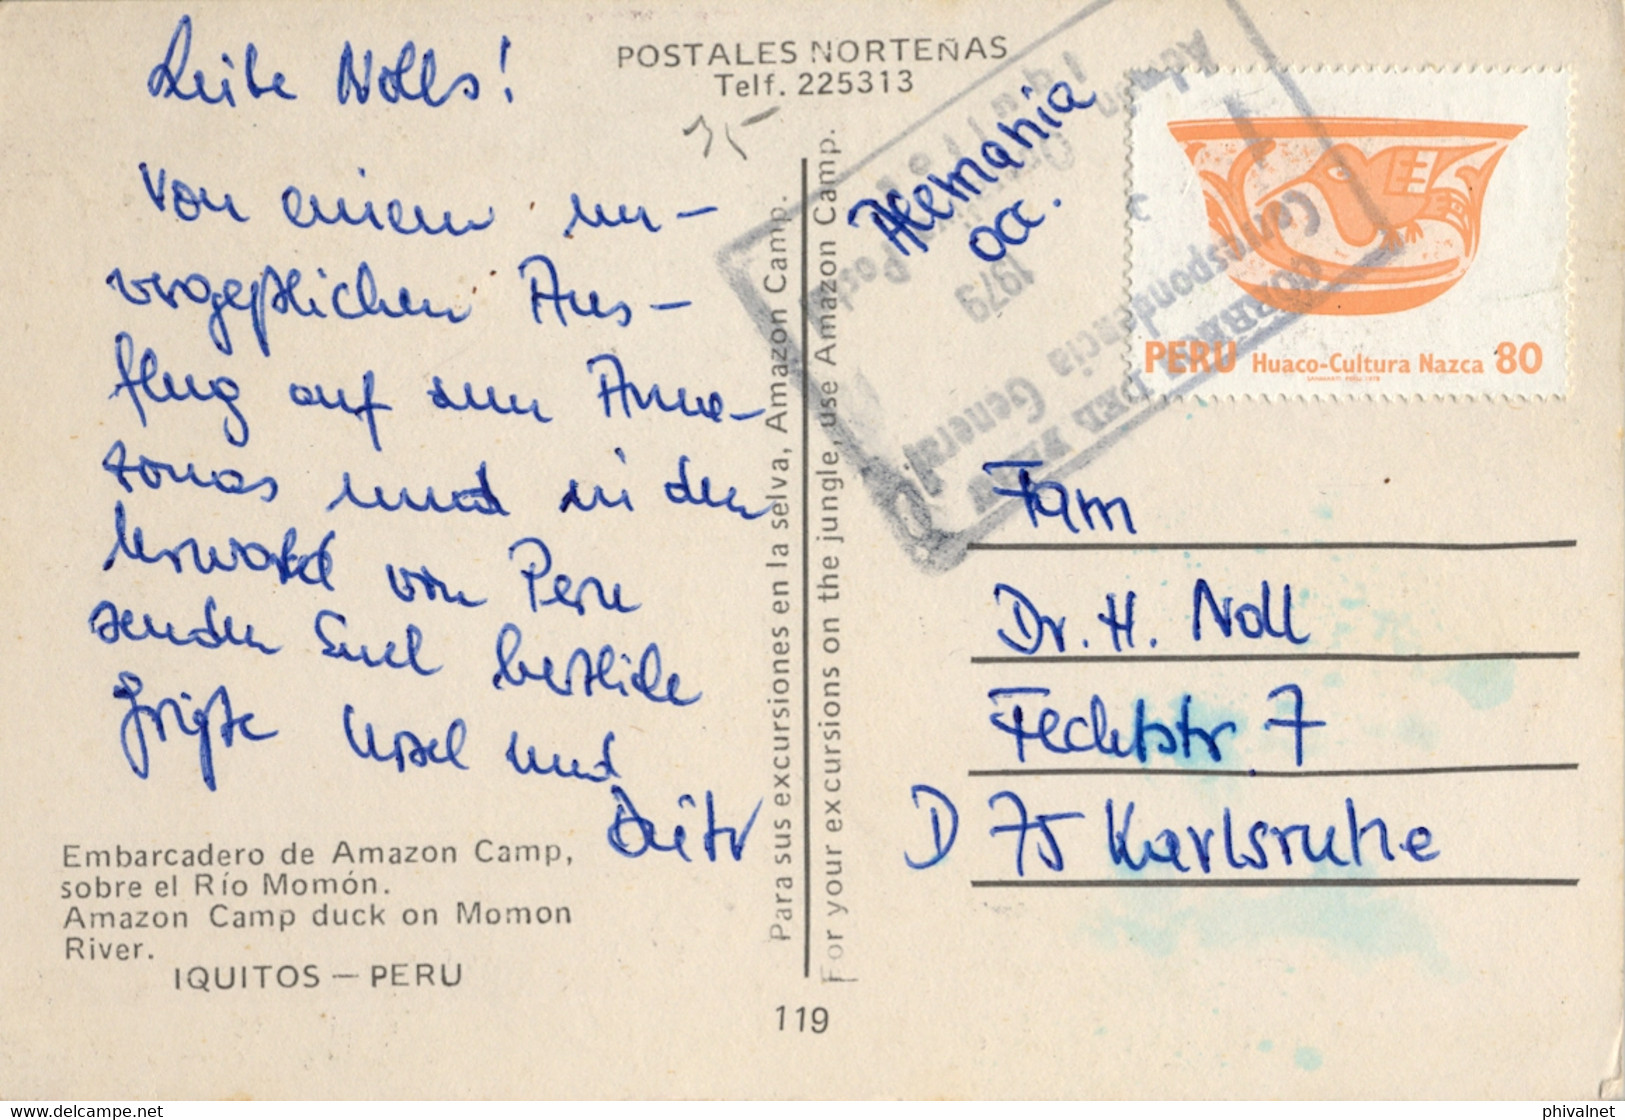 Liebe Nolls!
Von einem un-
vergeßlichen Aus-
flug auf den Ama-
zonas und in den
Urwald von Peru
senden Euch herzliche
Grüße Ursel und
Dieter
Embarcadero de Amazon Camp,
sobre el Río Momón.
Amazon Camp duck on Momon
River.
IQUITOS — PERU
POSTALES NORTEÑAS
Telf. 225313
75
Para sus excursiones en la selva, Amazon Camp.
For your excursions on the jungle, use Amazon Camp.
119
Alemania
occ.
1979
Correspondencia General
PERU Huaco-Cultura Nazca 80
Fam
Dr. H. Noll
Fechtstr. 7
D 75 Karlsruhe
https://www.delcampe.net
phivalnet